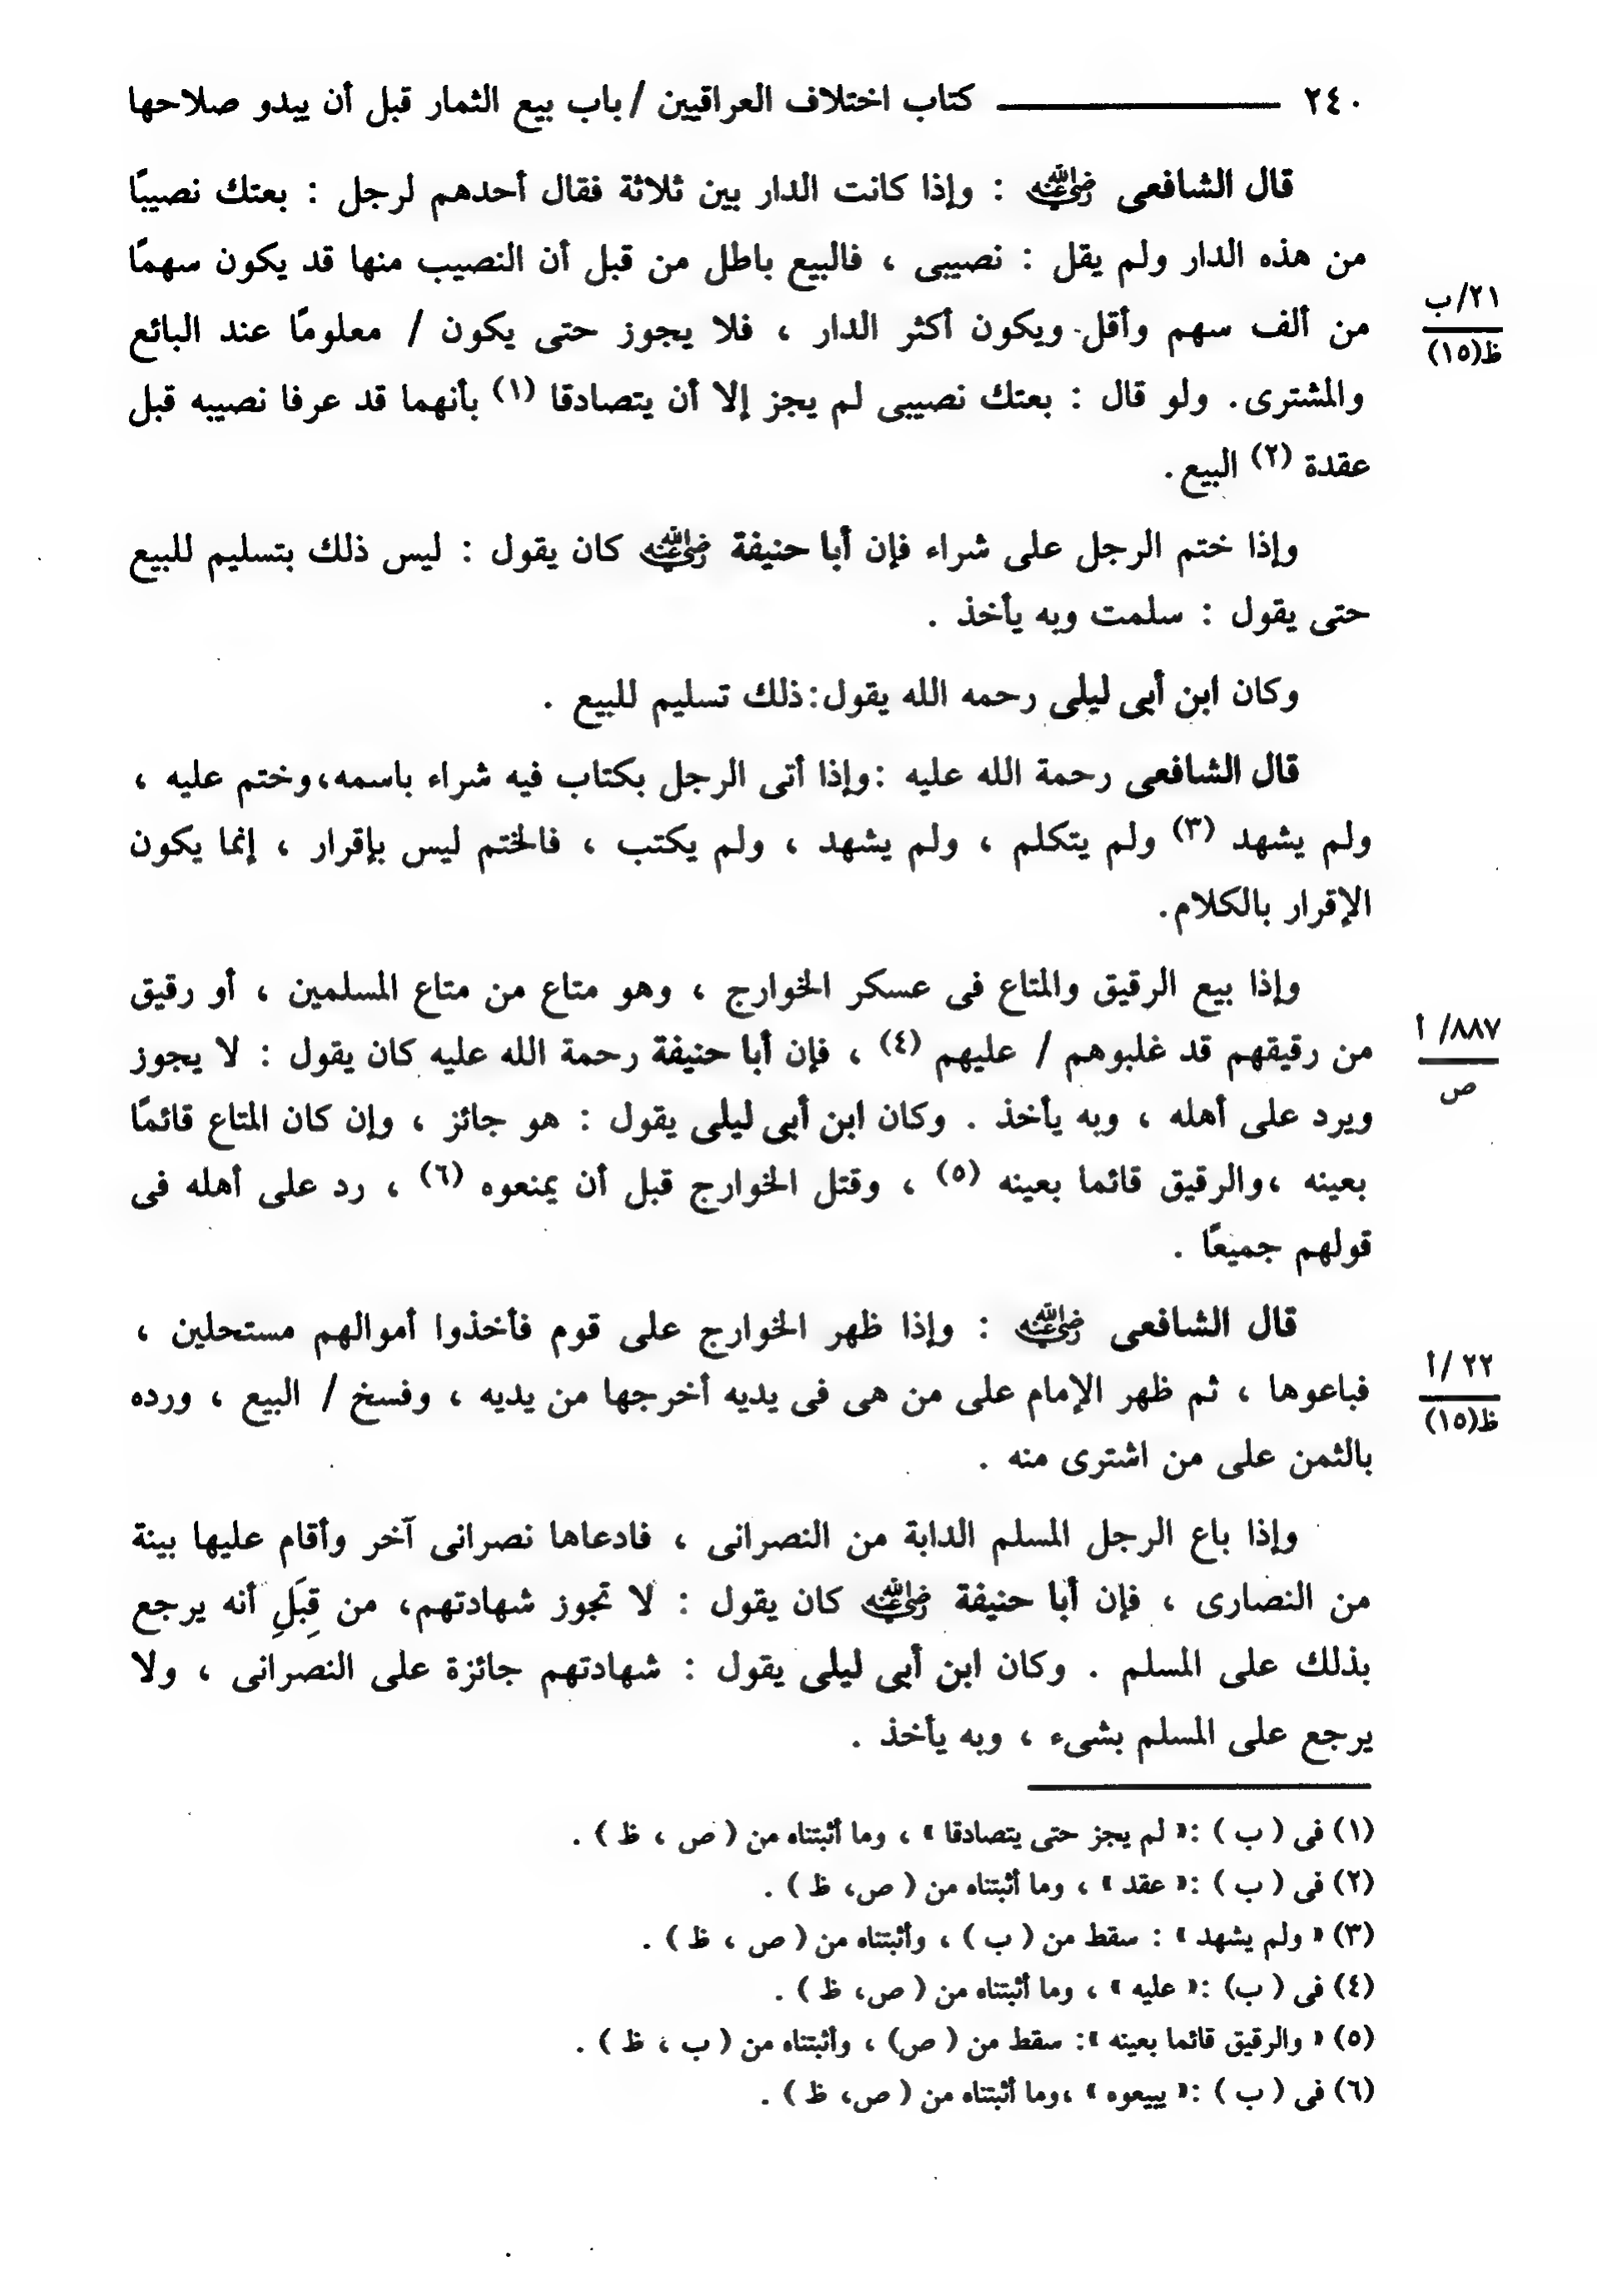 ٢٤٠ ــــــــــــــــ كتاب اختلاف العراقيين / باب بيع الثمار قبل أن يبدو صلاحها
قال الشافعى رضي الله عنه : وإذا كانت الدار بين ثلاثة فقال أحدهم لرجل : بعتك نصيبًا
من هذه الدار ولم يقل : نصيبى ، فالبيع باطل من قبل أن النصيب منها قد يكون سهمًا
من ألف سهم وأقل ويكون أكثر الدار ، فلا يجوز حتى يكون / معلومًا عند البائع
٢١/ب
ظ(١٥)
والمشترى. ولو قال : بعتك نصيبى لم يجز إلا أن يتصادقا (١) بأنهما قد عرفا نصيبه قبل
عقدة (٢) البيع.
وإذا ختم الرجل على شراء فإن أبا حنيفة رضي الله عنه كان يقول : ليس ذلك بتسليم للبيع
حتى يقول : سلمت وبه يأخذ .
وكان ابن أبى ليلى رحمه الله يقول:ذلك تسليم للبيع .
قال الشافعى رحمة الله عليه :وإذا أتى الرجل بكتاب فيه شراء باسمه،وختم عليه ،
ولم يشهد (٣) ولم يتكلم ، ولم يشهد ، ولم يكتب ، فالختم ليس بإقرار ، إنما يكون
الإقرار بالكلام.
وإذا بيع الرقيق والمتاع فى عسكر الخوارج ، وهو متاع من متاع المسلمين ، أو رقيق
من رقيقهم قد غلبوهم / عليهم (٤) ، فإن أبا حنيفة رحمة الله عليه كان يقول : لا يجوز
٨٨٧/ أ
ص
ويرد على أهله ، وبه يأخذ . وكان ابن أبى ليلى يقول : هو جائز ، وإن كان المتاع قائمًا
بعينه ،والرقيق قائما بعينه (٥) ، وقتل الخوارج قبل أن يمنعوه (٦) ، رد على أهله فى
قولهم جميعًا .
قال الشافعى رضي الله عنه : وإذا ظهر الخوارج على قوم فأخذوا أموالهم مستحلين ،
فباعوها ، ثم ظهر الإمام على من هى فى يديه أخرجها من يديه ، وفسخ / البيع ، ورده
٢٢ /أ
ظ(١٥)
بالثمن على من اشترى منه .
وإذا باع الرجل المسلم الدابة من النصرانى ، فادعاها نصرانى آخر وأقام عليها بينة
من النصارى ، فإن أبا حنيفة رضي الله عنه كان يقول : لا تجوز شهادتهم، من قِبَلِ أنه يرجع
بذلك على المسلم . وكان ابن أبى ليلى يقول : شهادتهم جائزة على النصرانى ، ولا
يرجع على المسلم بشىء ، وبه يأخذ .
(١) فى ( ب ) :« لم يجز حتى يتصادقا » ، وما أثبتناه من ( ص ، ظ ) .
(٢) فى ( ب ) :« عقد » ، وما أثبتناه من ( ص، ظ ) .
(٣) « ولم يشهد » : سقط من ( ب ) ، وأثبتناه من ( ص ، ظ ) .
(٤) فى ( ب) :« عليه » ، وما أثبتناه من ( ص، ظ ) .
(٥) « والرقيق قائما بعينه »: سقط من ( ص) ، وأثبتناه من ( ب ، ظ ) .
(٦) فى ( ب ) :« يبيعوه » ،وما أثبتناه من ( ص، ظ ) .